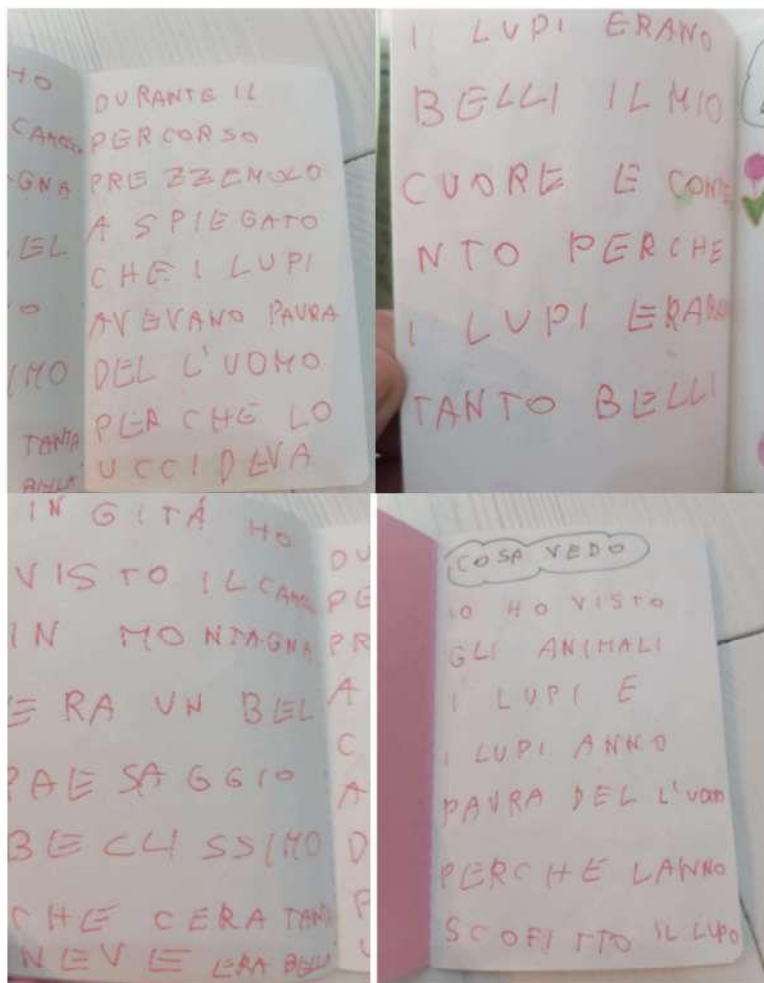 HO
CAMOS
GNA
EL
O
IMO
TANTA
BELLA
DURANTE IL
PERCORSO
PREZZEMOLO
A SPIEGATO
CHE I LUPI
AVEVANO PAURA
DEL L'UOMO
PERCHE LO
UCCIDEVA
I LUPI ERANO
BELLI IL MIO
CUORE E CONTE
NTO PERCHE
I LUPI ERANO
TANTO BELLI
IN GITÁ HO
VISTO IL
IN MONTAGNA
ERA UN BEL
PAESAGGIO
BELLISSIMO
CHE CERA TANTA
NEVE ERA BELLA
DU
PE
PR
A
C
A
D
P
U
COSA VEDO
IO HO VISTO
GLI ANIMALI
I LUPI E
I LUPI ANNO
PAURA DEL L'UOMO
PERCHE LANNO
SCOFITTO IL LUPO